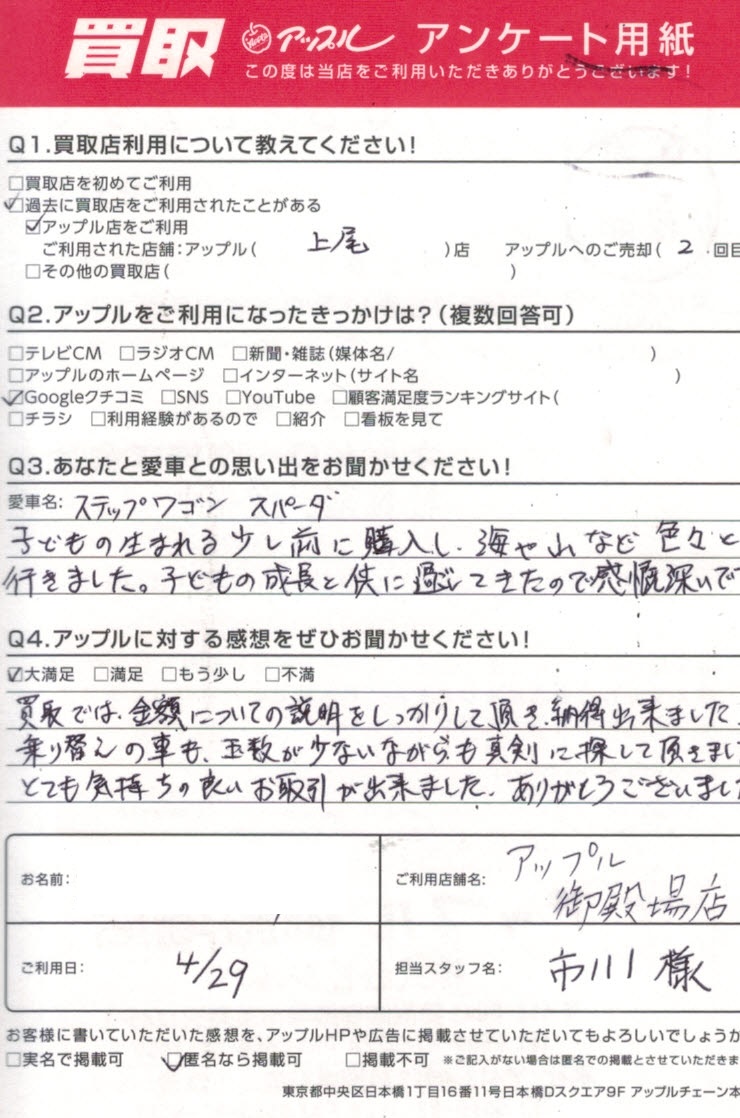 買取 アップル アンケート用紙
この度は当店をご利用いただきありがとうございます!
Q1.買取店利用について教えてください!
□買取店を初めてご利用
☑過去に買取店をご利用されたことがある
☑アップル店をご利用
ご利用された店舗:アップル( 上尾 )店 アップルへのご売却( 2 回目
□その他の買取店( )
Q2.アップルをご利用になったきっかけは?(複数回答可)
□テレビCM □ラジオCM □新聞・雑誌(媒体名/ )
□アップルのホームページ □インターネット(サイト名 )
☑Googleクチコミ □SNS □YouTube □顧客満足度ランキングサイト(
□チラシ □利用経験があるので □紹介 □看板を見て
Q3.あなたと愛車との思い出をお聞かせください!
愛車名: ステップワゴン スパーダ
子どもの生まれる少し前に購入し、海や山など色々と
行きました。子どもの成長と供に過ごしてきたので感慨深いで
Q4.アップルに対する感想をぜひお聞かせください!
☑大満足 □満足 □もう少し □不満
買取では、金額についての説明をしっかりして頂き、納得出来ました
乗り替えの車も、玉数が少ないながらも真剣に探して頂きまし
とても気持ちの良いお取引が出来ました。ありがとうございまし
お名前:
ご利用店舗名: アップル
御殿場店
ご利用日: 4/29
担当スタッフ名: 市川 様
お客様に書いていただいた感想を、アップルHPや広告に掲載させていただいてもよろしいでしょうか
□実名で掲載可 ☑匿名なら掲載可 □掲載不可 ※ご記入がない場合は匿名での掲載とさせていただきま
東京都中央区日本橋1丁目16番11号日本橋Dスクエア9F アップルチェーン本